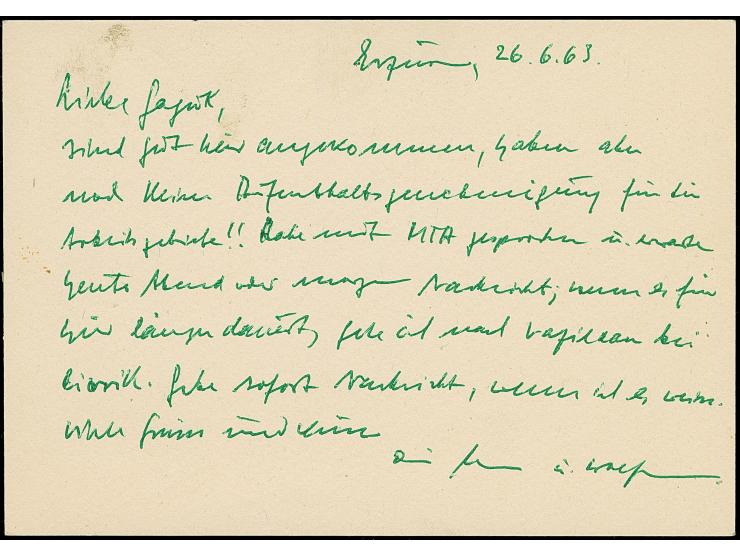 Erzurum, 26.6.63.
Liebe
sind gut hier angekommen, haben aber
noch keine Aufenthaltsgenehmigung für die
Arbeitsgebiete!! Habe mit MTA gesprochen u. erwarte
heute Abend oder morgen Nachricht; wenn es für
hier länger dauert, gehe ich nach bei
Gebe sofort Nachricht, wenn ich es weiss.
Viele Grüsse
u.